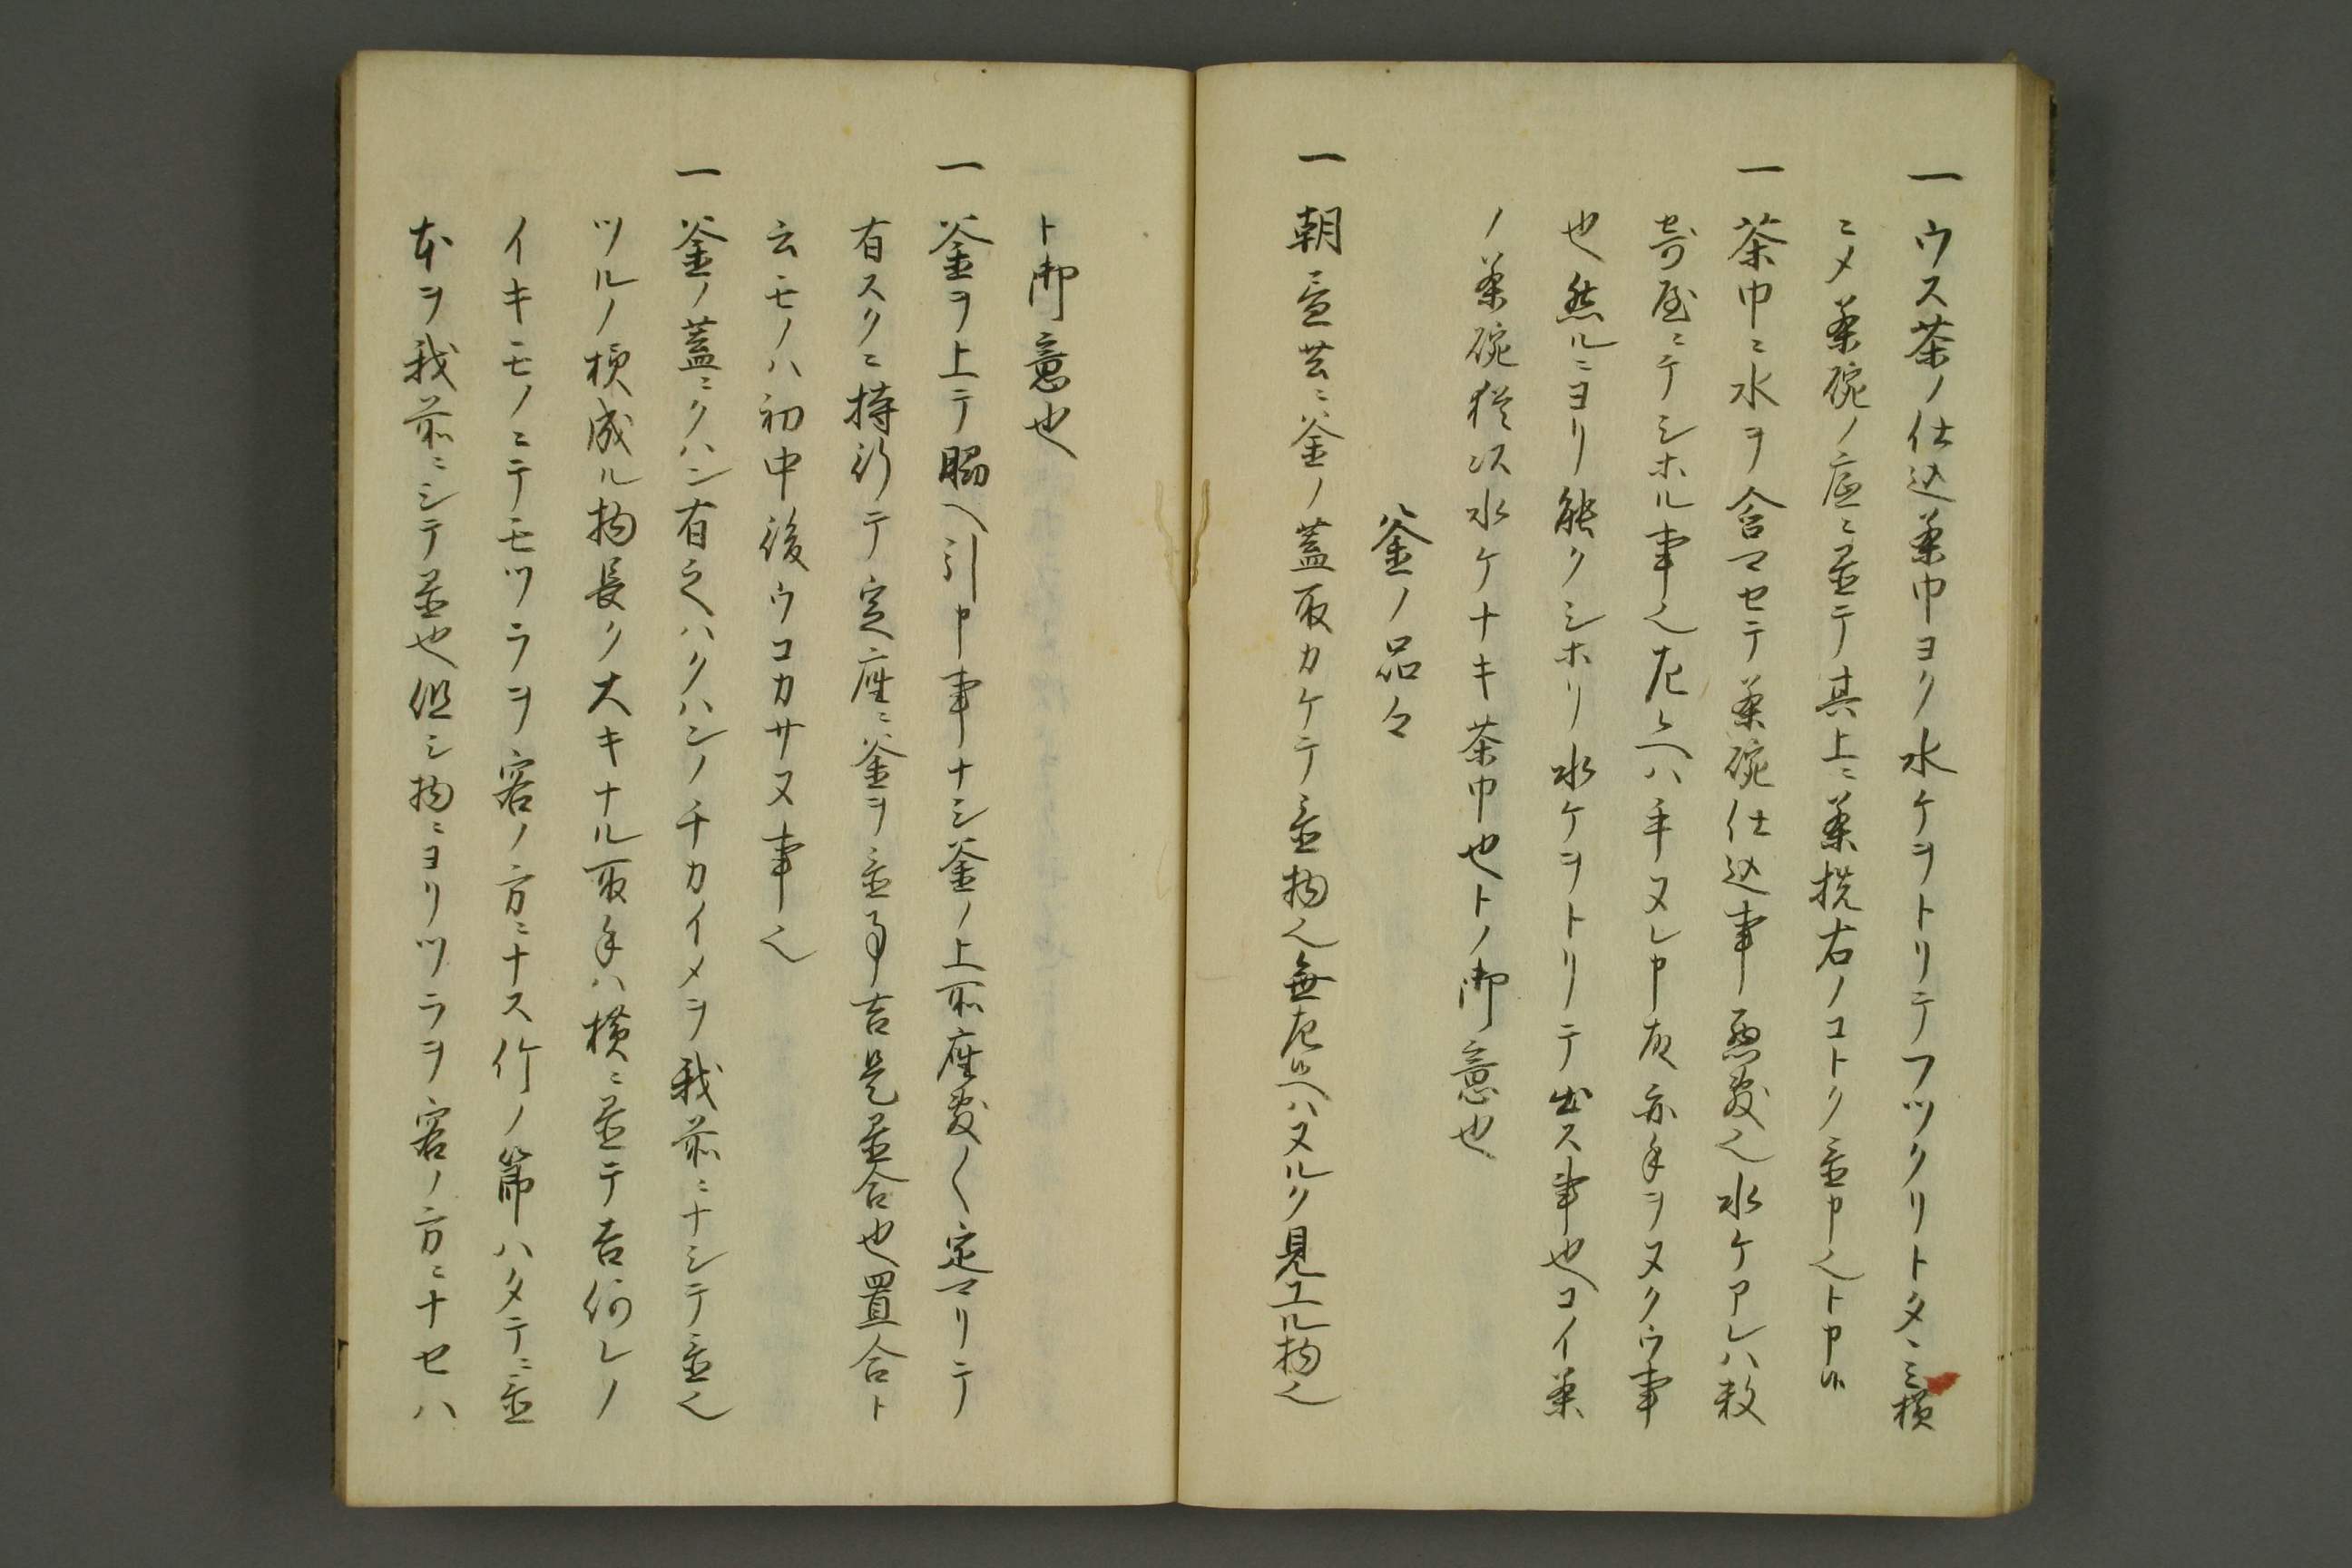 一ウス茶ノ仕込茶巾ヨク水ケヲトリテフツクリトタヽミ横
ニメ茶碗ノ底ニ置テ其上ニ茶筅右ノコトク置申也ト申候
一茶巾ニ水ヲ含マセテ茶碗仕込事悪敷也水ケアレハ数
寄屋ニテシホル事也左候ヘハ手ヌレ申故亦手ヲヌクウ事
也然ルニヨリ能クシホリ水ケヲトリテ出ス事也コイ茶
ノ茶碗猶以水ケナキ茶巾也トノ御意也
釜ノ品々
一朝昼共ニ釜ノ蓋取カケテ置物也無左候ヘハヌルク見エル物也
ト御意也
一釜ヲ上テ脇ヘ引申事ナシ釜ノ上所座敷〱定マリテ
有スクニ持行テ定座ニ釜ヲ置事吉是置合也置合ト
云モノハ初中後ウコカサヌ事也
一釜ノ蓋ニクハン有之ハクハンノチカイメヲ我前ニナシテ置也
ツルノ様成ル物長ク大キナル取手ハ横ニ置テ吉何レノ
イキモノニテモツラヲ客ノ方ニナス竹ノ節ハタテニ置
本ヲ我前ニシテ置也但シ物ニヨリツラヲ客ノ方ニナセハ